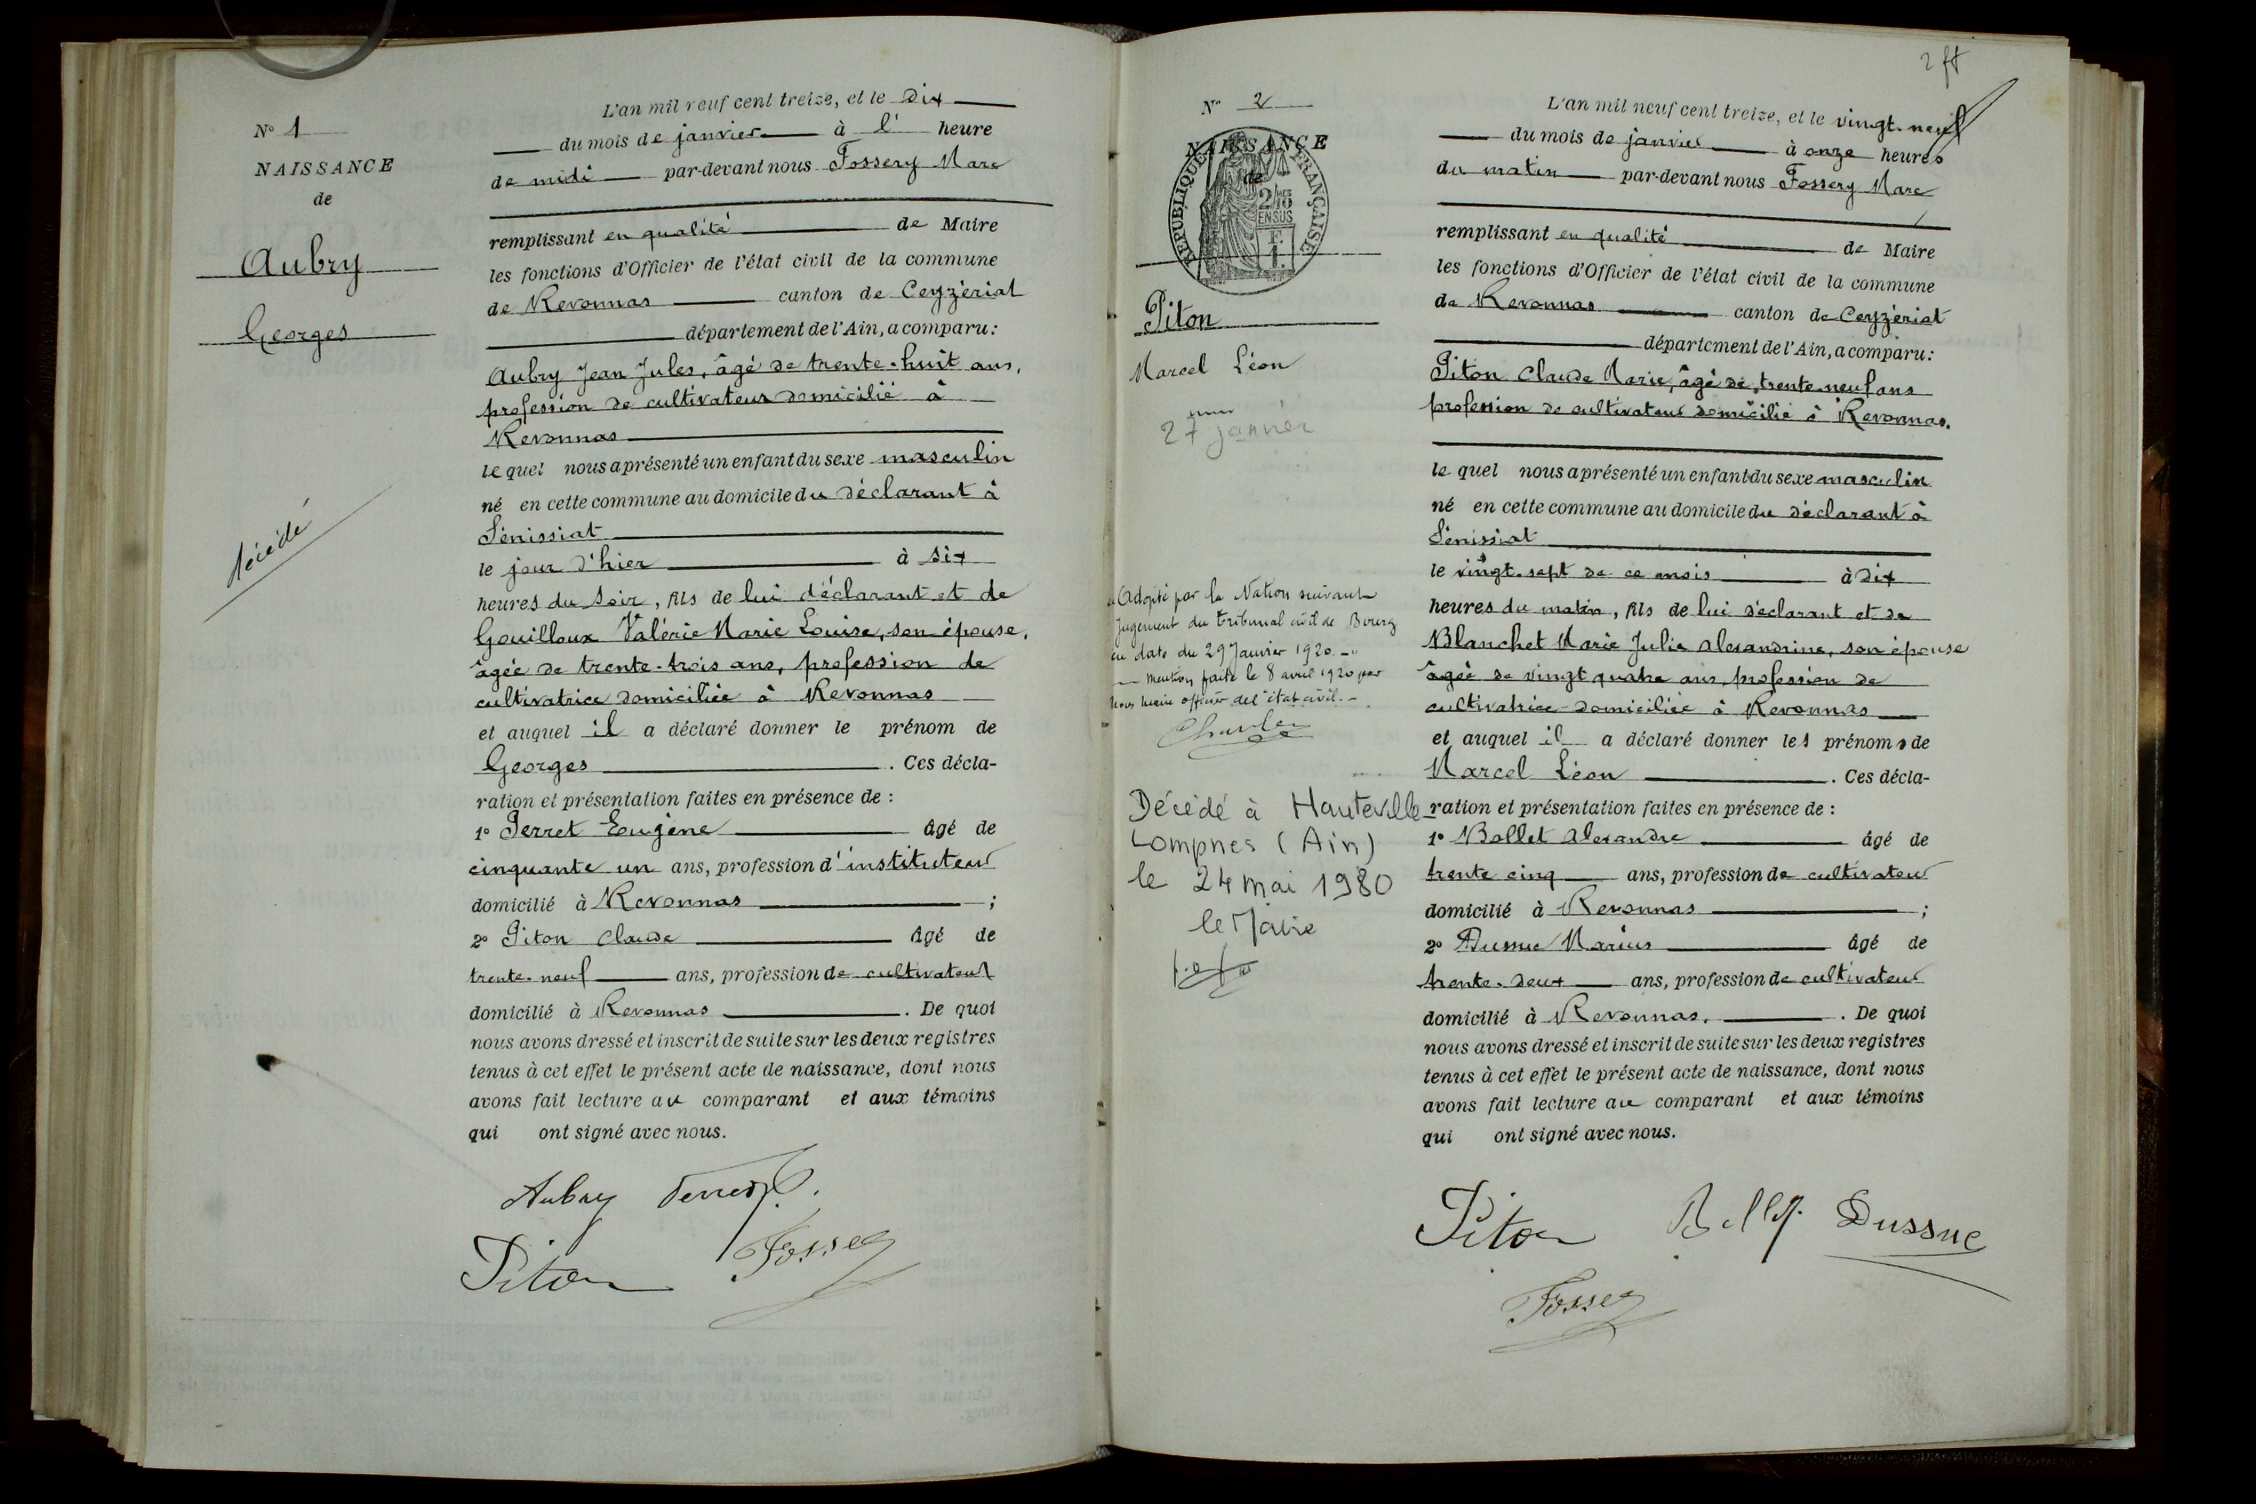 N° 1
NAISSANCE
de
Aubry
Georges
décédé
L'an mil neuf cent treize, et le dix
du mois de janvier à l' heure
de midi par-devant nous Fossery Marc
remplissant en qualité de Maire
les fonctions d'Officier de l'état civil de la commune
de Revonnas canton de Ceyzériat
département de l'Ain, a comparu:
Aubry Jean Jules, âgé de trente-huit ans,
profession de cultivateur domicilié à
Revonnas
lequel nous a présenté un enfant du sexe masculin
né en cette commune au domicile du déclarant à
Sénissiat
le jour d'hier à six
heures du soir, fils de lui déclarant et de
Gouilloux Valérie Marie Louise, son épouse,
âgée de trente-trois ans, profession de
cultivatrice domiciliée à Revonnas
et auquel il a déclaré donner le prénom de
Georges . Ces décla-
ration et présentation faites en présence de :
1° Perret Eugène âgé de
cinquante un ans, profession d'instituteur
domicilié à Revonnas ;
2° Piton Claude âgé de
trente-neuf ans, profession de cultivateur
domicilié à Revonnas . De quoi
nous avons dressé et inscrit de suite sur les deux registres
tenus à cet effet le présent acte de naissance, dont nous
avons fait lecture au comparant et aux témoins
qui ont signé avec nous.
Aubry Perret
Piton Fossery
2 ft
N° 2
NAISSANCE
de
RÉPUBLIQUE FRANÇAISE
Piton
Marcel Léon
27 janvier
Adopté par la Nation suivant
Jugement du tribunal civil de Bourg
en date du 29 Janvier 1920
Mention faite le 8 avril 1920 par
Nous maire officier de l'état civil.
Décédé à Hauteville
Lompnes (Ain)
le 24 mai 1980
le Maire
L'an mil neuf cent treize, et le vingt-neuf
du mois de janvier à onze heures
du matin par-devant nous Fossery Marc
remplissant en qualité de Maire
les fonctions d'Officier de l'état civil de la commune
de Revonnas canton de Ceyzériat
département de l'Ain, a comparu:
Piton Claude Marie, âgé de trente-neuf ans
profession de cultivateur domicilié à Revonnas.
lequel nous a présenté un enfant du sexe masculin
né en cette commune au domicile du déclarant à
Sénissiat
le vingt-sept de ce mois à dix
heures du matin, fils de lui déclarant et de
Blanchet Marie Julie Alexandrine, son épouse
âgée de vingt quatre ans, profession de
cultivatrice domiciliée à Revonnas
et auquel il a déclaré donner les prénoms de
Marcel Léon . Ces décla-
ration et présentation faites en présence de :
1° Bollet Alexandre âgé de
trente cinq ans, profession de cultivateur
domicilié à Revonnas ;
2° Dussuc Marius âgé de
trente-deux ans, profession de cultivateur
domicilié à Revonnas. . De quoi
nous avons dressé et inscrit de suite sur les deux registres
tenus à cet effet le présent acte de naissance, dont nous
avons fait lecture au comparant et aux témoins
qui ont signé avec nous.
Piton Bollet Dussuc
Fossery